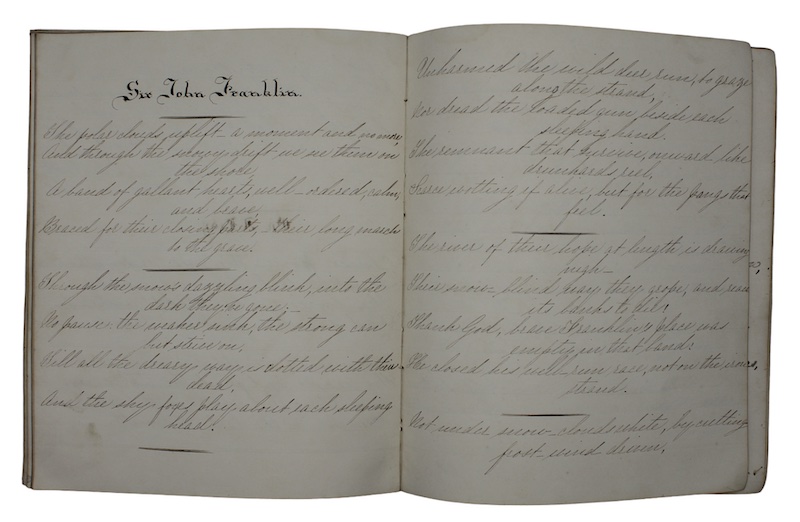 Sir John Franklin.
The polar clouds uplift - a moment and no more,
And through the snowy drift we see them on
the shore,
A band of gallant hearts, well-ordered, calm,
and brave,
Braced for their closing - their long march
to the grave.
Through the snow's dazzling blink, into the
dark they've gone; -
No pause: the weaker sink, the strong can
but strive on,
Till all the dreary way is dotted with their
dead,
And the shy foxes play about each sleeping
head.
Unharmed the wild deer run, to graze
along the strand,
Nor dread the loaded gun beside each
sleeping hand.
The remnant that survive, onward like
drunkards reel,
Scarce witting if alive, but for the pangs they
feel.
The river of their hope at length is drawing
nigh -
Their snow-blind way they grope, and reach
its banks to die!
Thank God, brave Franklin's place was
empty in that band!
He closed his well-run race, not on the
strand.
Not under snow-clouds white, by cutting
frost-wind driven,